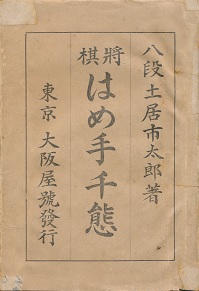 八段土居市太郎著
将棋
はめ手千態
東京 大阪屋號發行